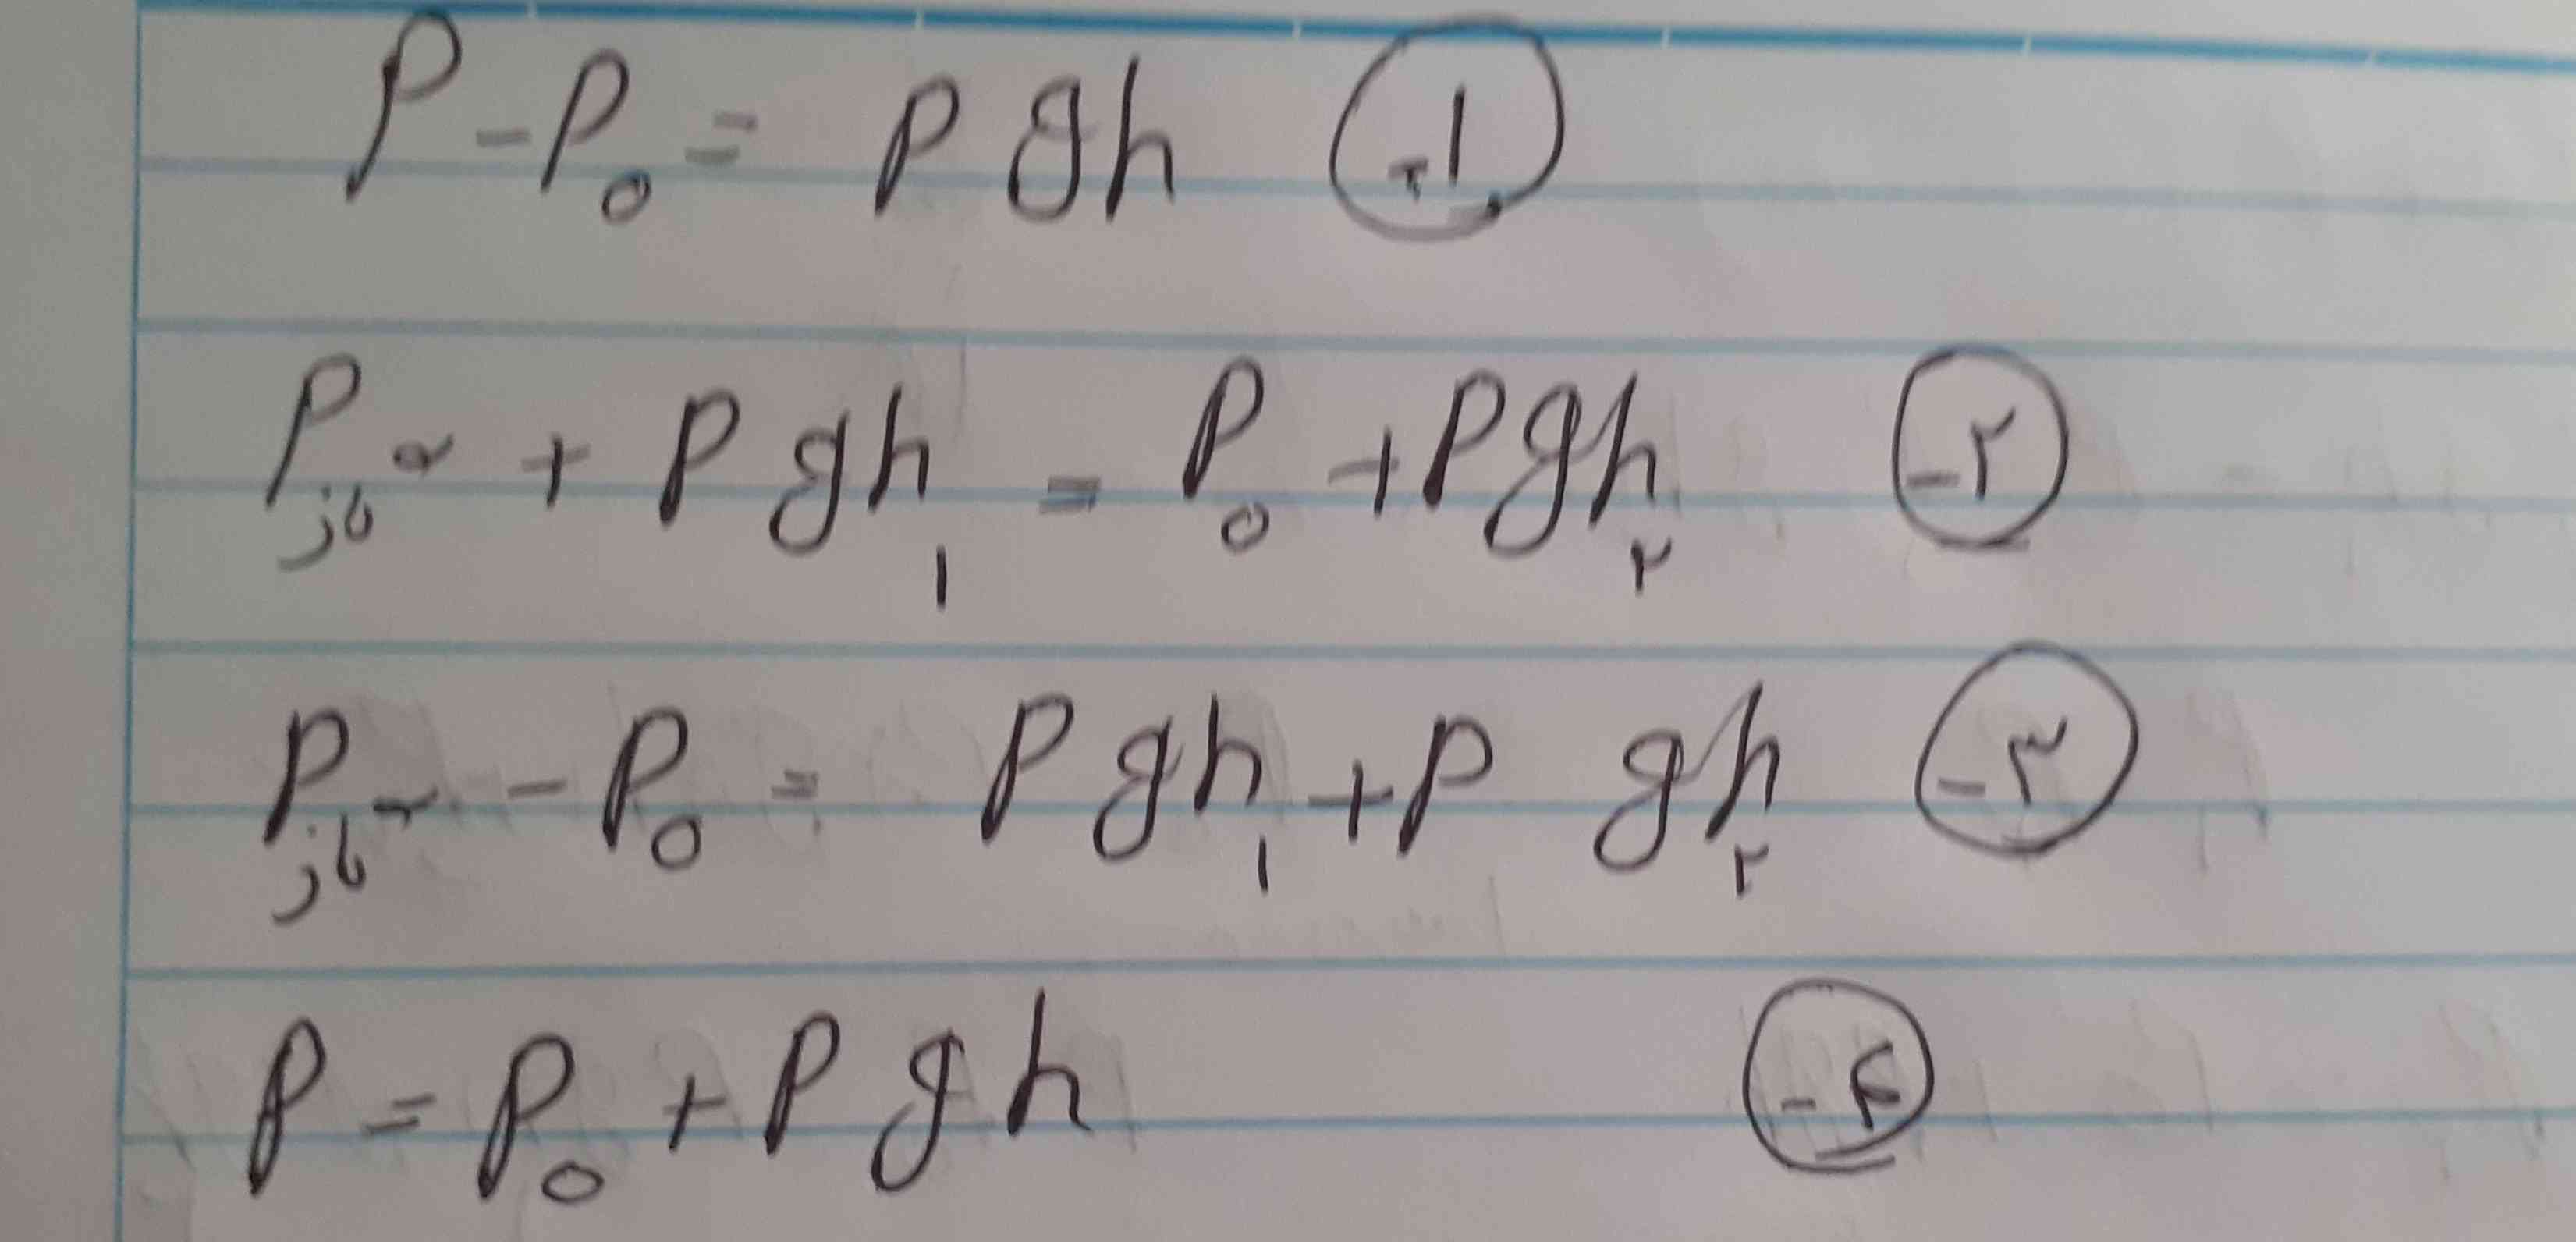 P - P₀ = ρgh ۱-
Pگاز + ρgh۱ = P₀ + ρgh۲ ۲-
Pگاز - P₀ = ρgh۱ + ρgh۲ ۳-
P = P₀ + ρgh ۴-